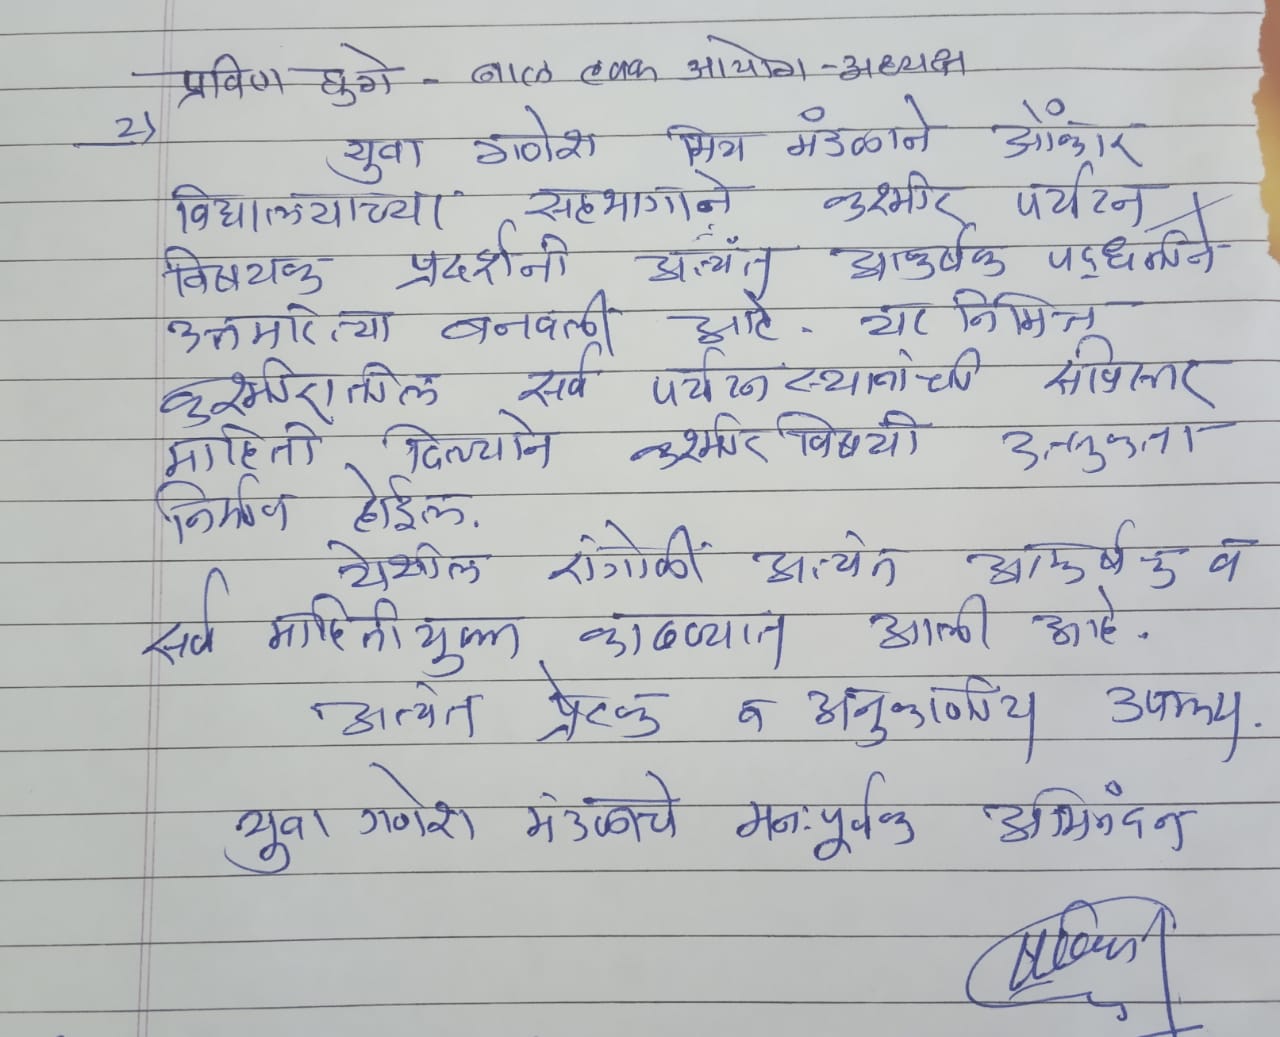 प्रविण घुगे - बाल हक्क आयोग - अध्यक्ष
2)
युवा गणेश मित्र मंडळाने ओंकार
विद्यालयाच्या सहभागाने काश्मीर पर्यटन
विषयक प्रदर्शनी अत्यंत आकर्षक पद्धतीने
उत्तमरित्या बनवली आहे. या निमित्त
काश्मीरातील सर्व पर्यटन स्थानांची सविस्तर
माहिती दिल्याने काश्मीर विषयी उत्सुकता
निर्माण होईल.
येथील रांगोळी अत्यंत आकर्षक व
सर्व माहितीयुक्त काढण्यात आली आहे.
अत्यंत प्रेरक व अनुकरणीय उपक्रम.
युवा गणेश मंडळाचे मनःपूर्वक अभिनंदन